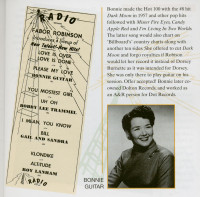 RADIO
FABOR ROBINSON
introduces a listing of
LOVE IS OVER,
LOVE IS DONE
PLEASE MY LOVE
BONNIE GUITAR
YOU MOSTEST GIRL
UH OH
BOBBY LEE TRAMMEL
I MEAN, YOU KNOW
BILL
GAIL AND SANDRA
KLONDIKE
ALTITUDE
ROY LANHAM
RADIO
Bonnie made the Hot 100 with the #8 hit
Dark Moon in 1957 and other pop hits
followed with Mister Fire Eyes, Candy
Apple Red and I'm Living In Two Worlds.
The latter song would also chart on
"Billboard's" country charts along with
another ten sides. She offered to cut Dark
Moon and forgo royalties if Robison
would let her record it instead of Dorsey
Burnette as it was intended for Dorsey.
She was only there to play guitar on his
session. Offer accepted! Bonnie later co-
owned Dolton Records and worked as
an A&R person for Dot Records.
BONNIE
GUITAR